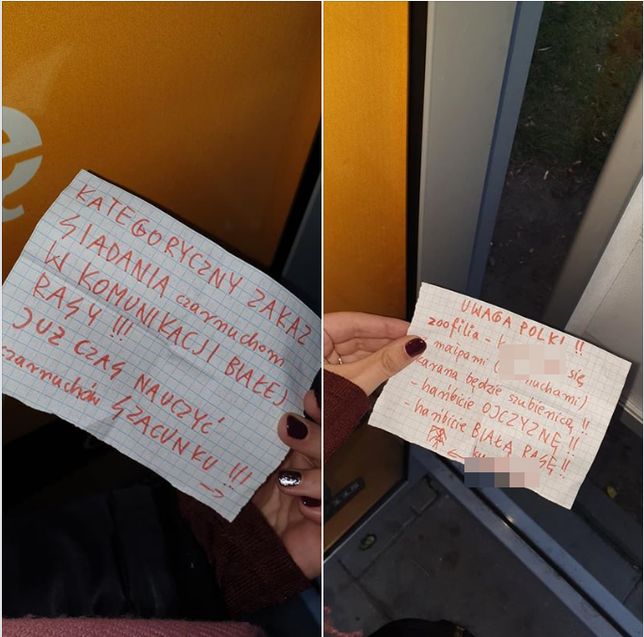 ę
KATEGORYCZNY ZAKAZ
SIADANIA czarnuchom
W KOMUNIKACJI BIAŁEJ
RASY !!!
JUŻ CZAS NAUCZYĆ
czarnuchów SZACUNKU !!!
→
UWAGA POLKI !!
zoofilia - się
małpami (
karana będzie szubienicą !!
- hańbicie OJCZYZNĘ !!
- hańbicie BIAŁĄ RASĘ !!
←